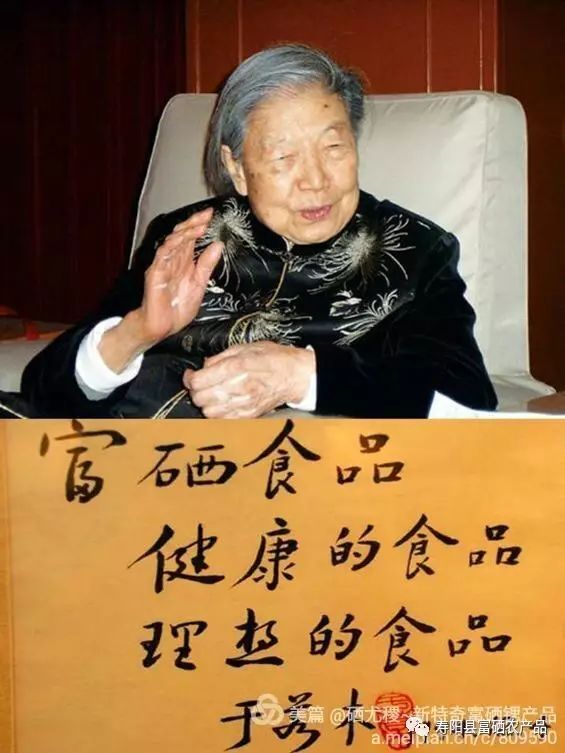 富硒食品
健康的食品
理想的食品
于若木
美篇 @硒尤稷~新特奇富硒锂产品
寿阳县富硒农产品
a.meipian.cn/c/809590